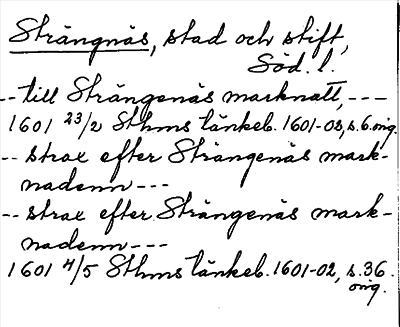 Strängnäs, stad och stift,
Söd. l.
-- till Strängenäs marknatt, ---
1601 23/2 Sthms tänkeb. 1601-02, s.6 orig.
-- strax efter Strängenäs mark-
nadenn ---
-- strax efter Strängenäs mark-
nadenn ---
1601 4/5 Sthms tänkeb. 1601-02, s.36.
orig.